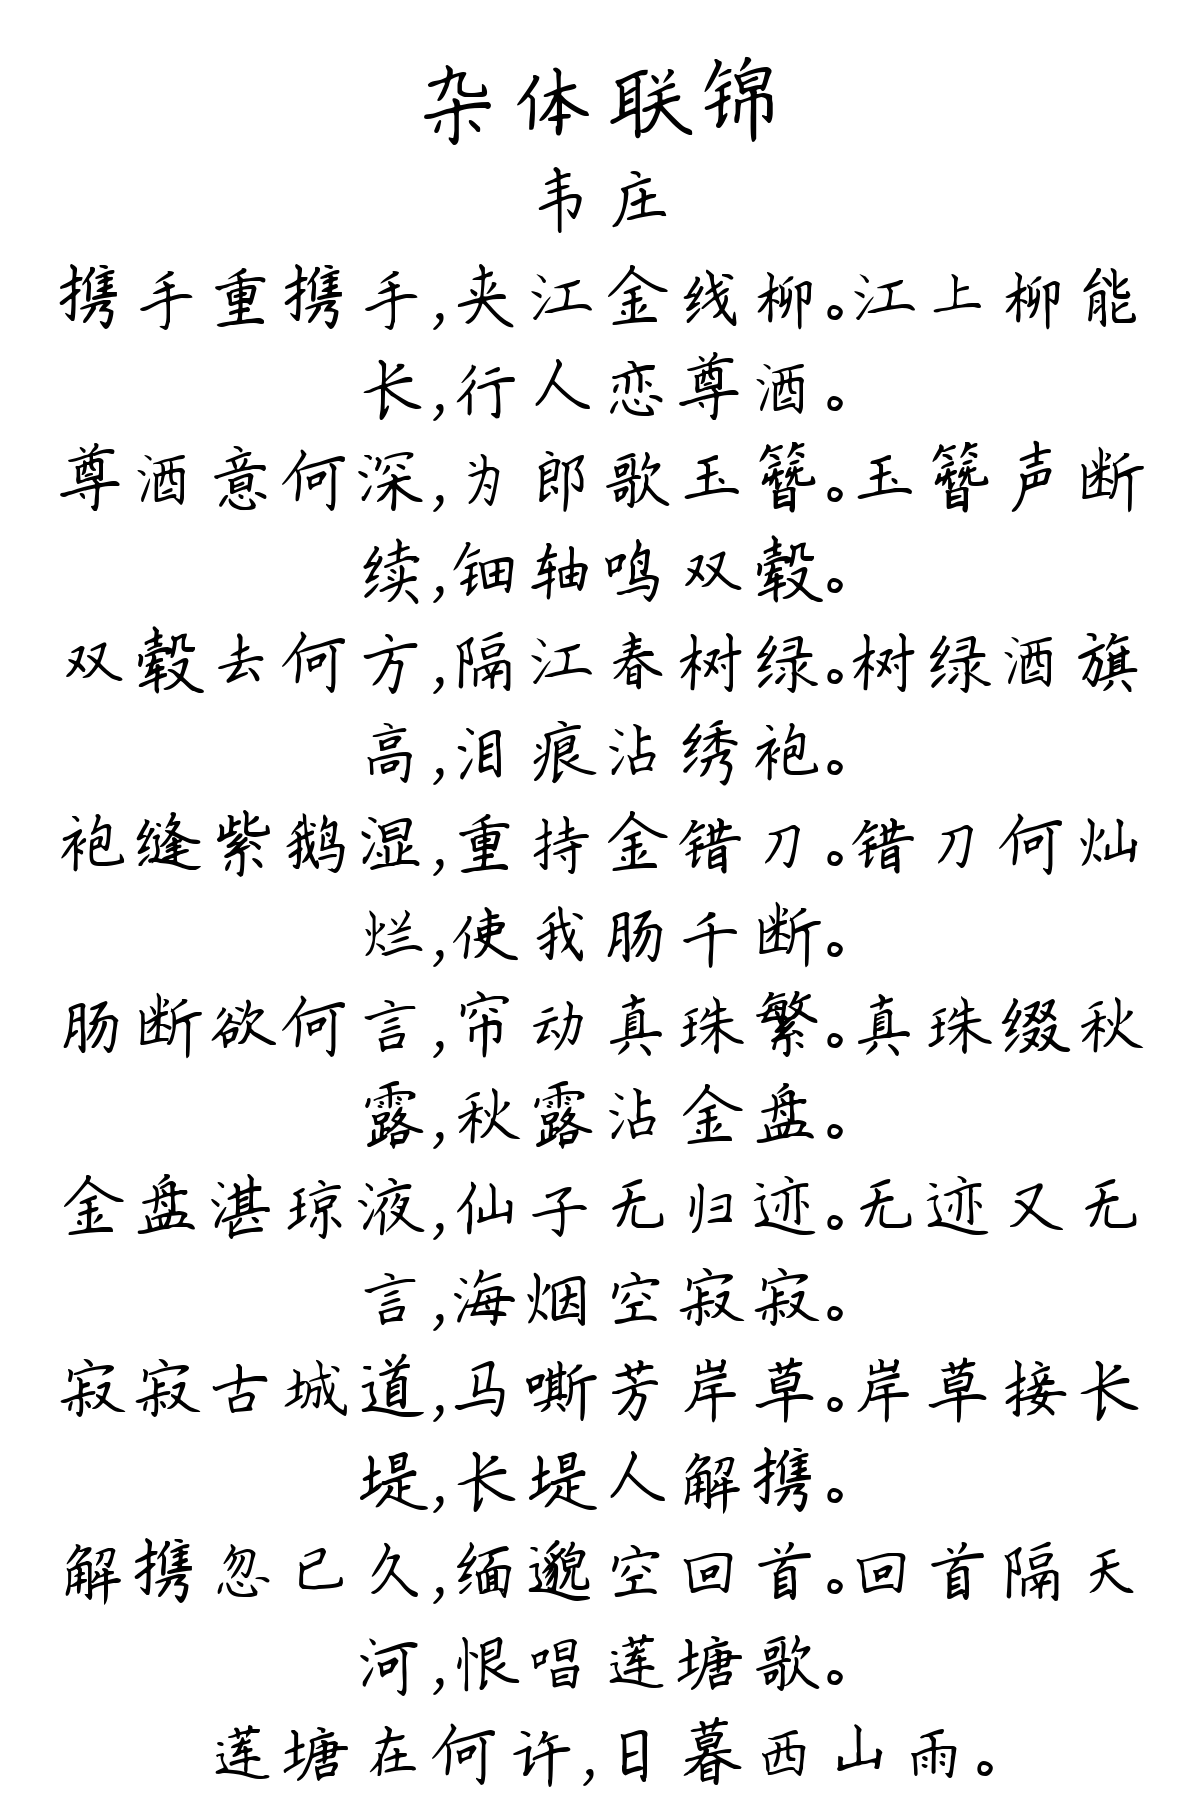 杂体联锦
韦庄
携手重携手,夹江金线柳。江上柳能
长,行人恋尊酒。
尊酒意何深,为郎歌玉簪。玉簪声断
续,钿轴鸣双毂。
双毂去何方,隔江春树绿。树绿酒旗
高,泪痕沾绣袍。
袍缝紫鹅湿,重持金错刀。错刀何灿
烂,使我肠千断。
肠断欲何言,帘动真珠繁。真珠缀秋
露,秋露沾金盘。
金盘湛琼液,仙子无归迹。无迹又无
言,海烟空寂寂。
寂寂古城道,马嘶芳岸草。岸草接长
堤,长堤人解携。
解携忽已久,缅邈空回首。回首隔天
河,恨唱莲塘歌。
莲塘在何许,日暮西山雨。